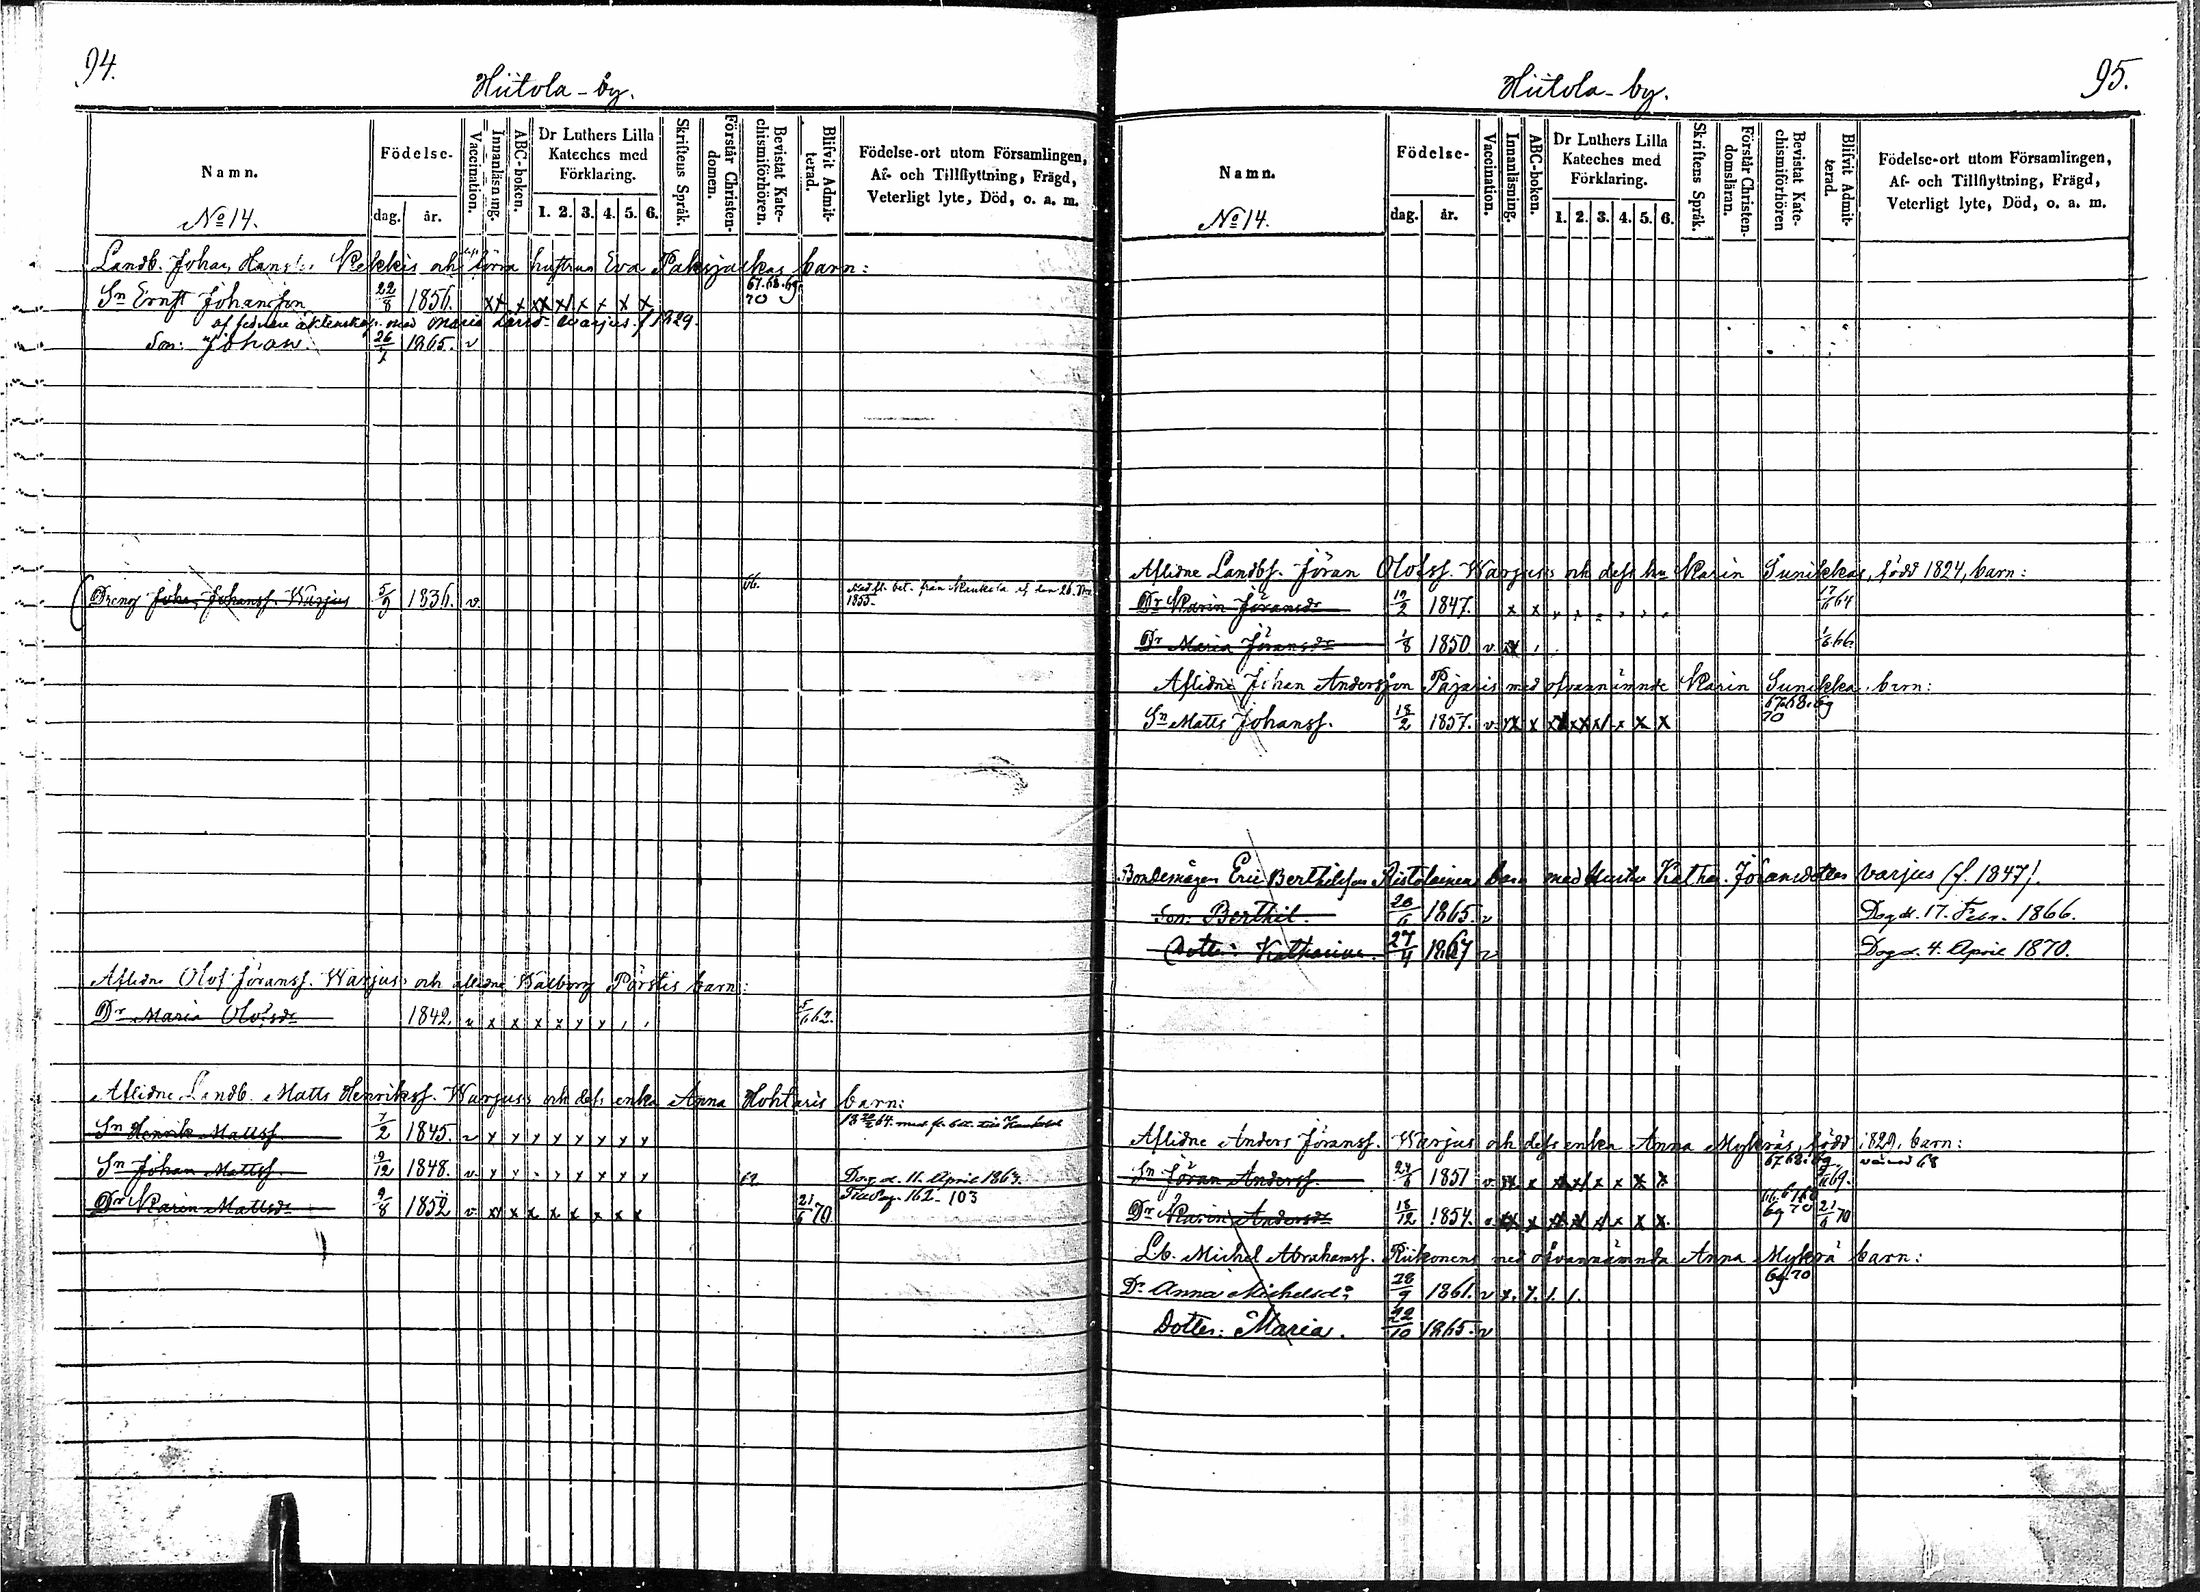 94.
Hiitola-by.
Namn.
No 14.
Födelse-
dag.
år.
Vaccination.
Innanläsning.
ABC-boken.
Dr Luthers Lilla Kateches med Förklaring.
1. 2. 3. 4. 5. 6.
Skriftens Språk.
Förstår Christen-domen.
Bevistat Kate-chismiförhören.
Blifvit Admit-terad.
Födelse-ort utom Församlingen,
Af- och Tillflyttning, Frägd,
Veterligt lyte, Död, o. a. m.
Landb. Johan Hanss. Kekkis och förra hustrun Eva Paksjalkas barn:
Sn Ernst Johansson 22/8 1856. x x x x x x x x x 67.68.69. 70
af sednare äktenskap med Maria Larsd. Varjus f 1829.
Son: Johan. 26/7 1865. v
Dreng Johan Johanss. Warjus 5/9 1836. v. 66. Med fl. bet. från Kaukola af den 26. 1855.
Aflidne Olof Jöranss. Warjus och aflidne Walborg Pörstis barn:
Dr Maria Olofsdr 1842. v x x x x x x 5/6 62.
Aflidne Landb. Matts Henrikss. Warjus och dess enka Anna Hohtaris barn:
Sn Henrik Mattss. 7/2 1845. v x x x x x x x x
Sn Johan Mattss. 9/12 1848. v. x x x x x x x 62 Dog d. 11. April 1863.
Dr Karin Mattsdr 9/8 1852 v. x x x x x x x x 21/6 70 Till Pag. 162. 103
95.
Hiitola-by.
Namn.
No 14.
Födelse-
dag.
år.
Vaccination.
Innanläsning.
ABC-boken.
Dr Luthers Lilla Kateches med Förklaring.
1. 2. 3. 4. 5. 6.
Skriftens Språk.
Förstår Christen-domsläran.
Bevistat Kate-chismiförhören
Blifvit Admit-terad.
Födelse-ort utom Församlingen,
Af- och Tillflyttning, Frägd,
Veterligt lyte, Död, o. a. m.
Aflidne Landbs. Jöran Olofss. Warjus och dess hu Karin Sunikkas, född 1824, barn:
Dr Karin Jöransdr 19/2 1847. x x 17/6 64
Dr Maria Jöransdr 1/8 1850 v. x 1/6 66.
Aflidne Johan Andersson Pajaris med ofvannämnde Karin Sunikka barn:
Sn Matts Johanss. 18/2 1857. v. x x x x x x x x 67.68.69 70
Bondemågen Eric Berthilsson Ristolainens barn med hustru Kathar. Johansdotter Varjus (f. 1847).
Son: Berthil. 20/6 1865. v Dog d. 17. Febr. 1866.
Dotter: Katharina. 27/4 1867 v Dog d. 4. April 1870.
Aflidne Anders Jöranss. Warjus och dess enka Anna Mykräs, född 1829, barn:
Sn Jöran Anderss. 24/6 1851 v. x x x x x x x x 67.68.69 69.
Dr Karin Andersdr 18/12 1854. x x x x x x x x 69 70 21/6 70
Lb. Michel Abrahamss. Riikonens med ofvannämnda Anna Mykrä barn:
Dr Anna Michelsdr 28/9 1861. v x. 69.70
Dotter: Maria. 22/10 1865. v